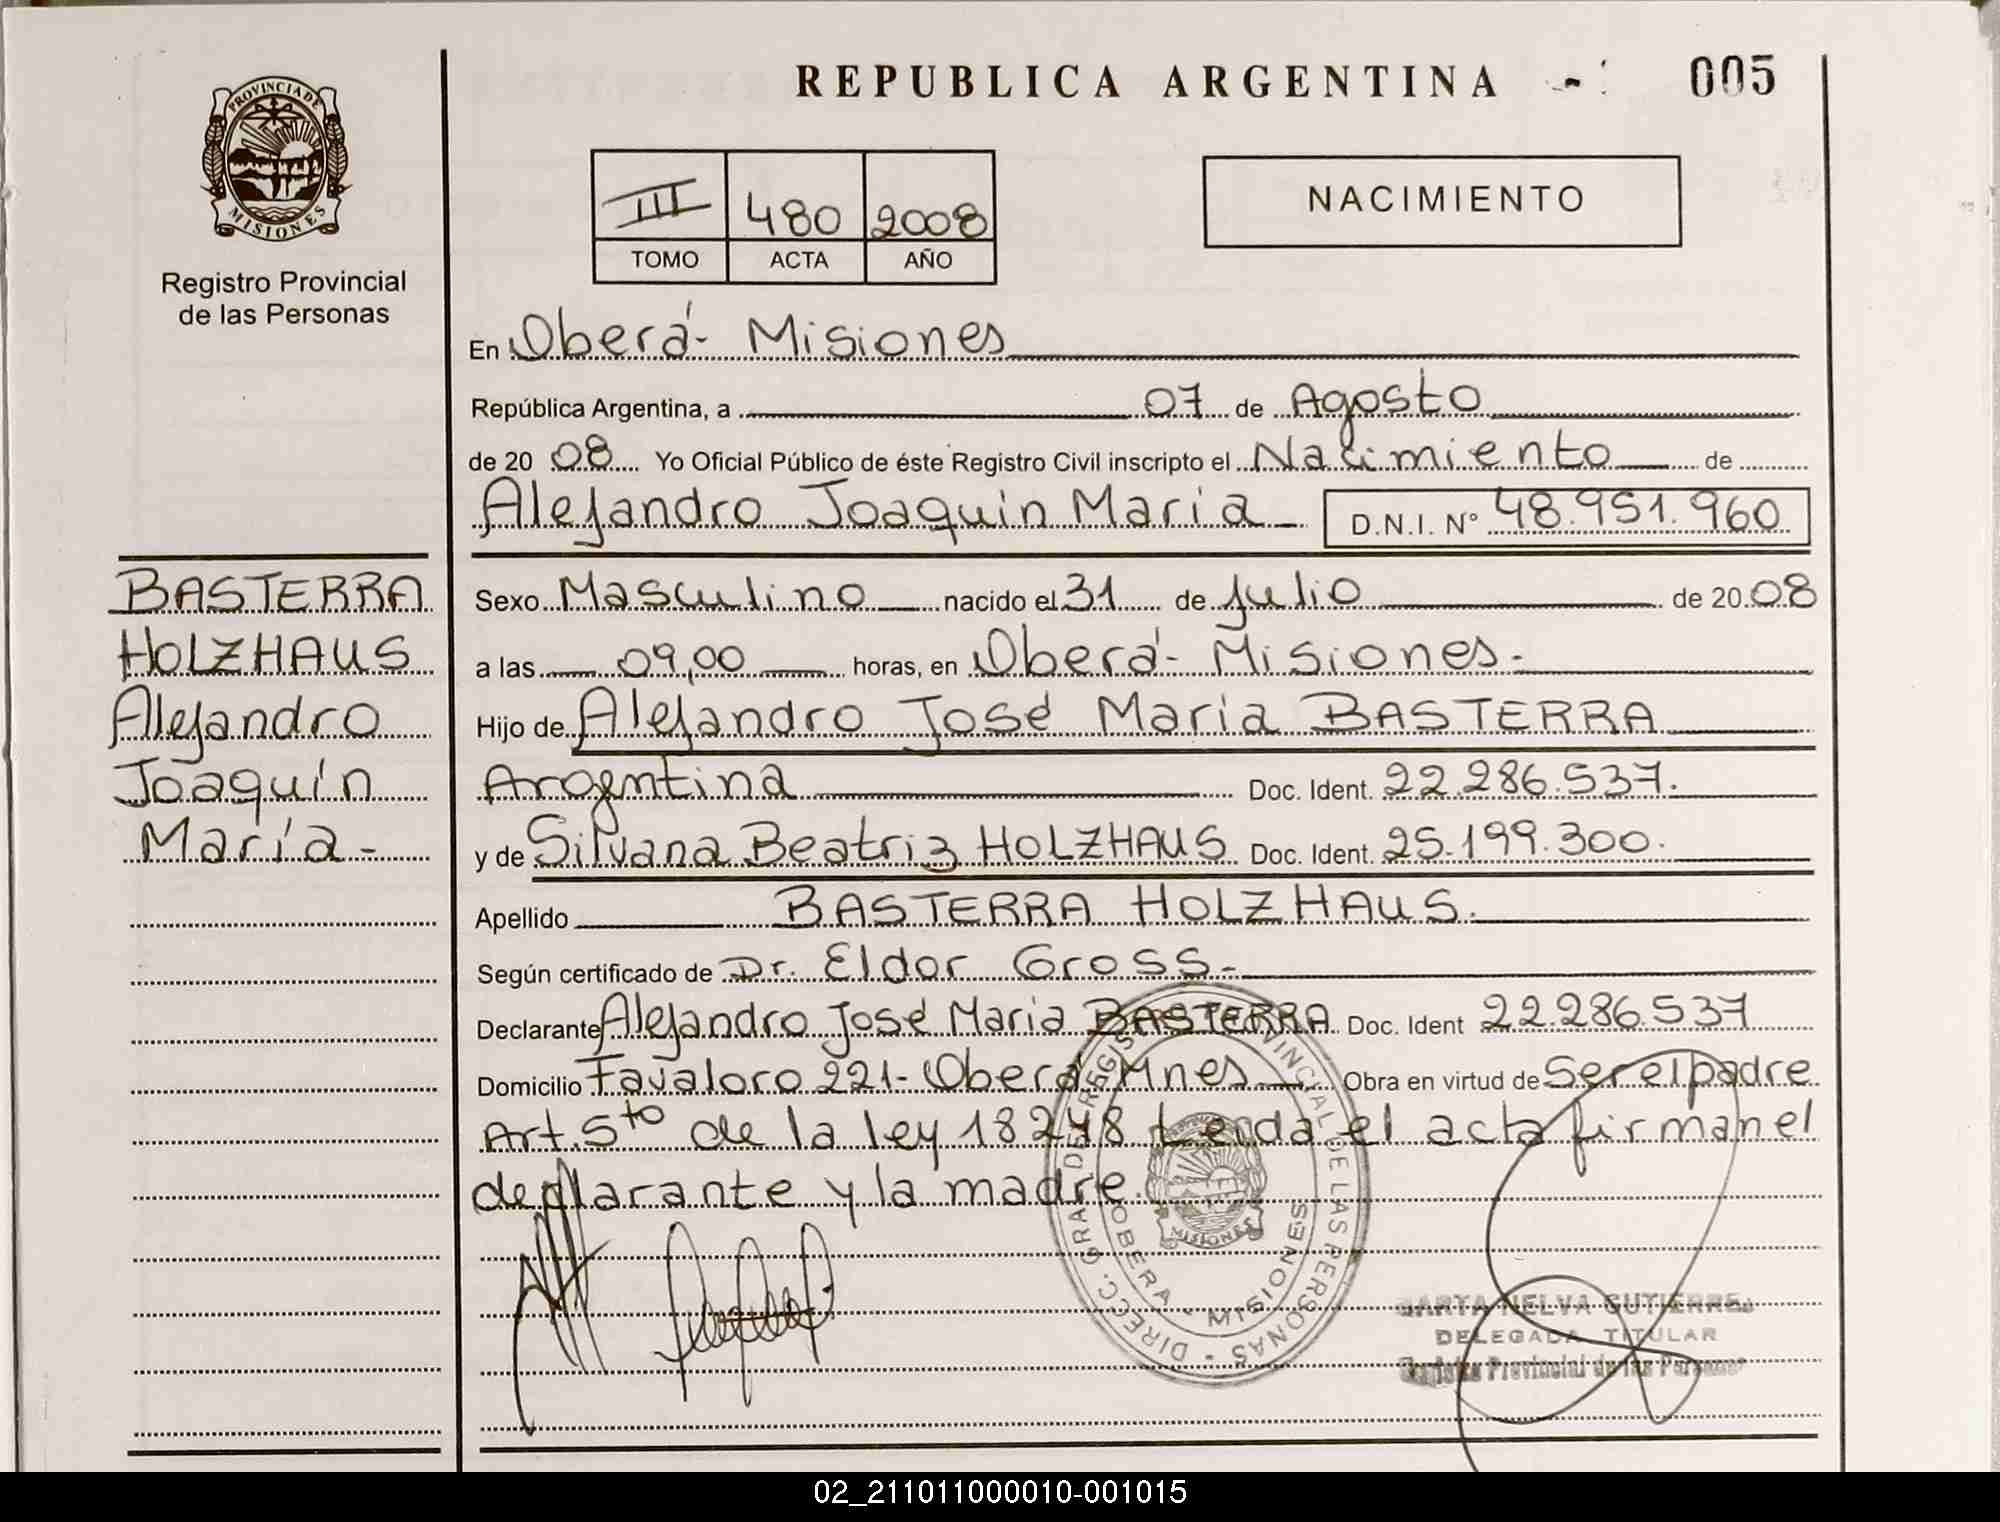 REPUBLICA ARGENTINA
005
PROVINCIA DE
MISIONES
Registro Provincial
de las Personas
III 480 2008
TOMO ACTA AÑO
NACIMIENTO
En Oberá- Misiones
República Argentina, a 07 de Agosto
de 20 08 Yo Oficial Público de éste Registro Civil inscripto el Nacimiento de
Alejandro Joaquin Maria D.N.I. N° 48.951.960
BASTERRA
HOLZHAUS
Alejandro
Joaquín
María-
Sexo Masculino nacido el 31 de julio de 20 08
a las 09,00 horas, en Oberá- Misiones-
Hijo de Alejandro José Maria BASTERRA
Argentina Doc. Ident. 22.286.537.
y de Silvana Beatriz HOLZHAUS Doc. Ident. 25.199.300.
Apellido BASTERRA HOLZHAUS.
Según certificado de Dr. Eldor Gross-
Declarante Alejandro José Maria BASTERRA Doc. Ident 22.286.537
Domicilio Favaloro 221- Oberá Mnes Obra en virtud de Ser el padre
Art. 5to de la ley 18248 Leida el acta firman el
declarante y la madre.
DIRECC. GRAL DE REGISTRO PROVINCIAL DE LAS PERSONAS
OBERA - MISIONES
MISIONES
MARTA NELVA GUTIERREZ
DELEGADA TITULAR
Registro Provincial de las Personas
02_211011000010-001015